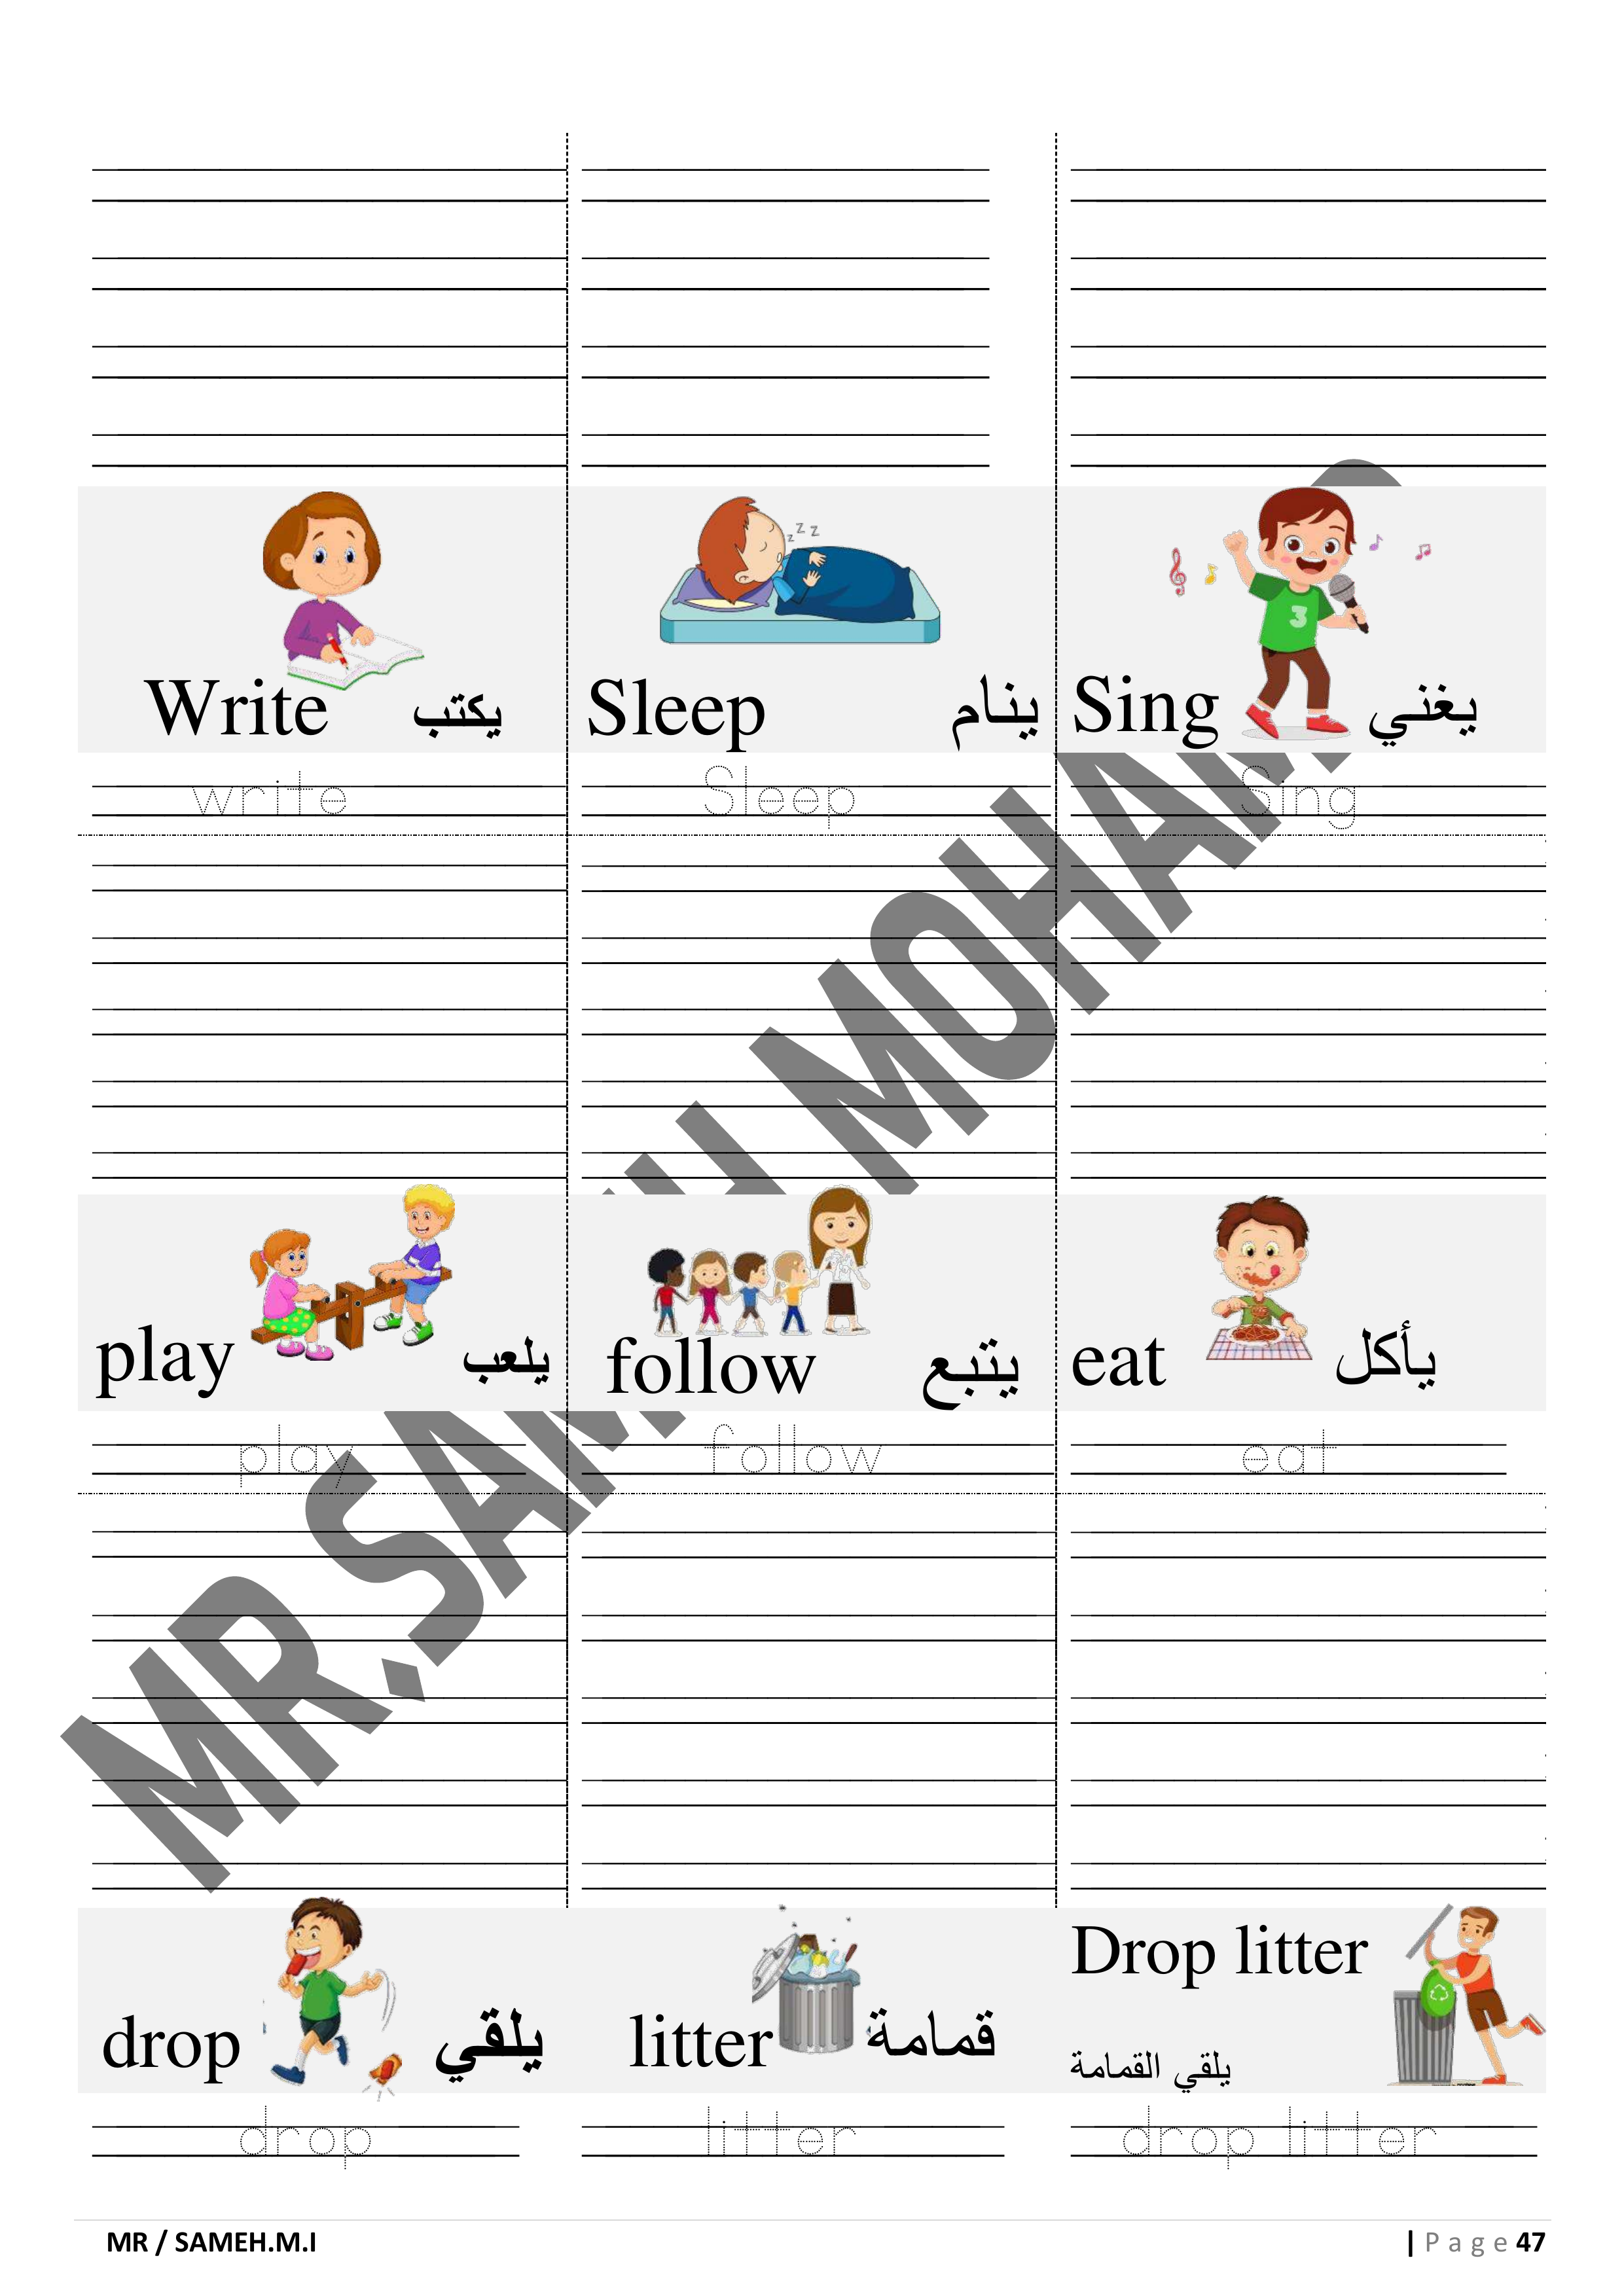 Write يكتب
Sleep ينام
Sing يغني
z z z
3
write
Sleep
Sing
play يلعب
follow يتبع
eat يأكل
play
follow
eat
drop يلقي
litter قمامة
Drop litter
يلقي القمامة
drop
litter
drop litter
MR / SAMEH.M.I
| Page 47